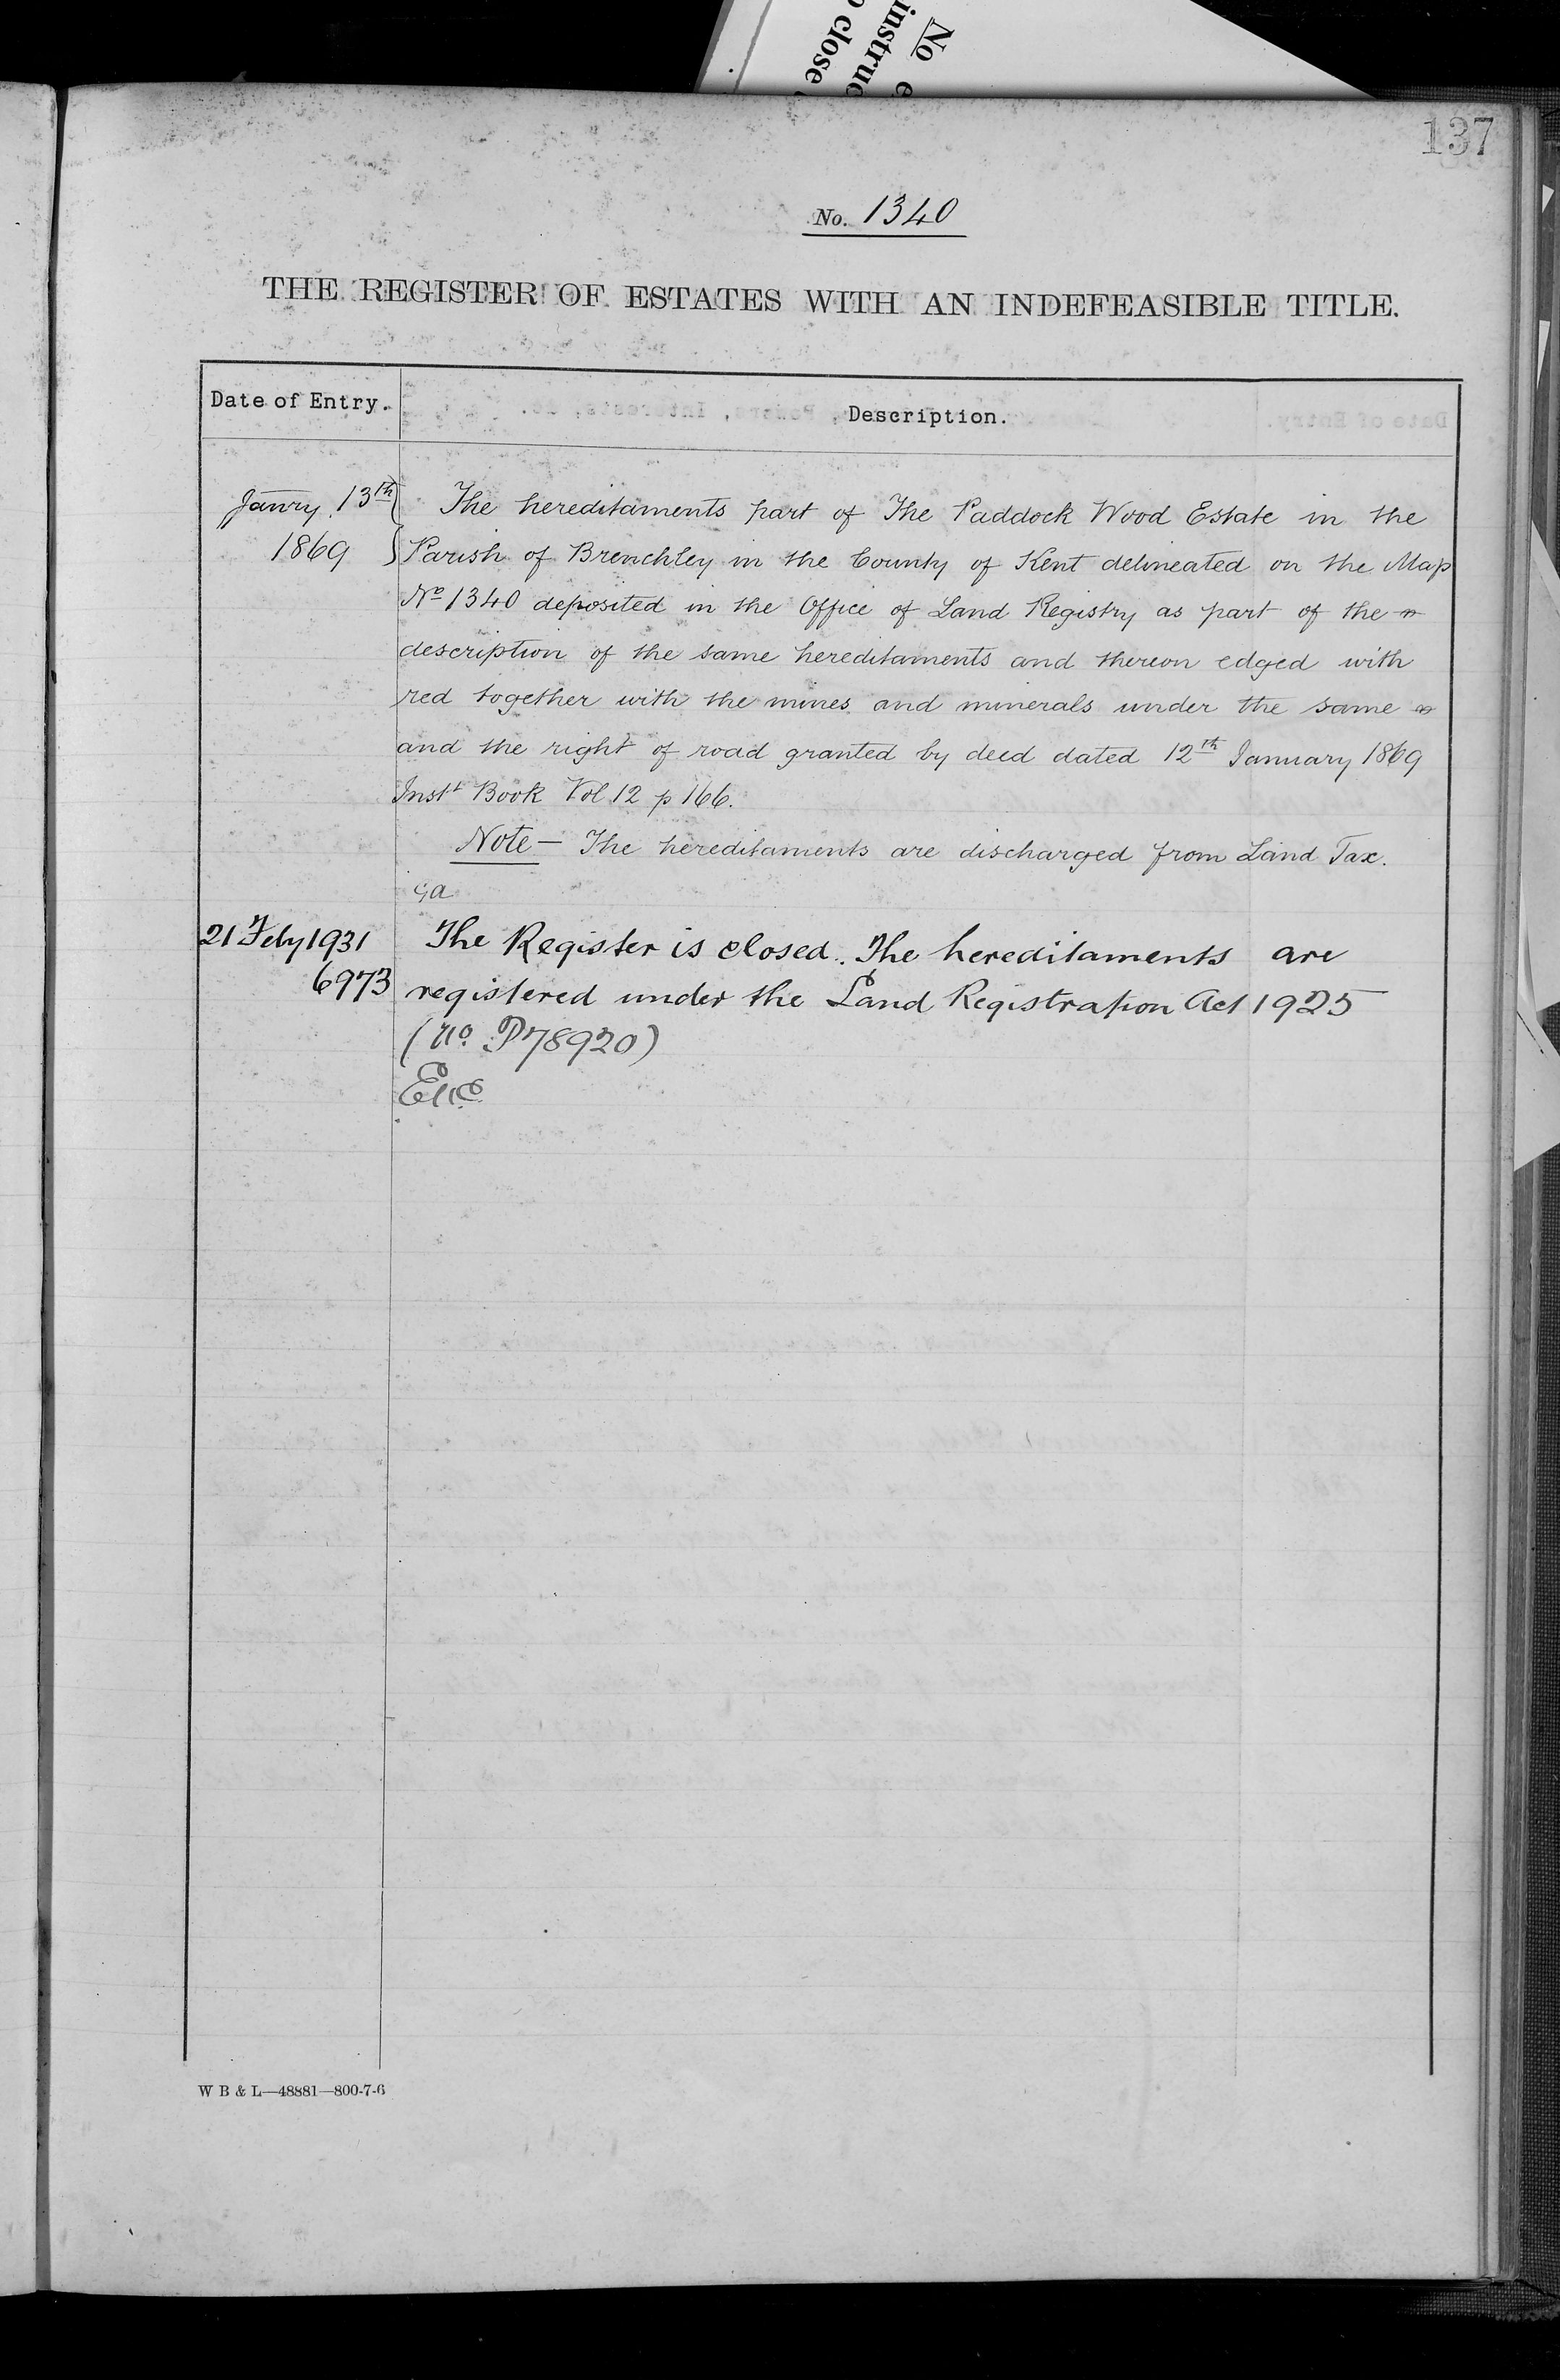 No
instruc
o close
137
No. 1340
THE REGISTER OF ESTATES WITH AN INDEFEASIBLE TITLE.
Date of Entry. Description.
Janry 13th The hereditaments part of The Paddock Wood Estate in the
1869 Parish of Brenchley in the County of Kent delineated on the Map
No 1340 deposited in the Office of Land Registry as part of the
description of the same hereditaments and thereon edged with
red together with the mines and minerals under the same
and the right of road granted by deed dated 12th January 1869
Inst Book Vol 12 p 166.
Note — The hereditaments are discharged from Land Tax.
21 Feby 1931 The Register is closed. The hereditaments are
6973 registered under the Land Registration Act 1925
(No. P78920)
W B & L—48881—800-7-6